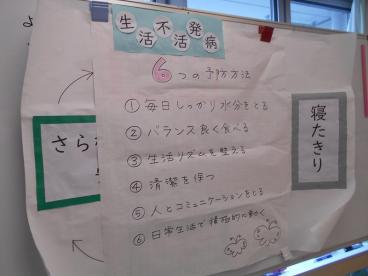 生活不活発病
6つの予防方法
① 毎日しっかり水分をとる
② バランス良く食べる
③ 生活リズムを整える
④ 清潔を保つ
⑤ 人とコミュニケーションをとる
⑥ 日常生活で積極的に動く
さら
寝たきり
よ